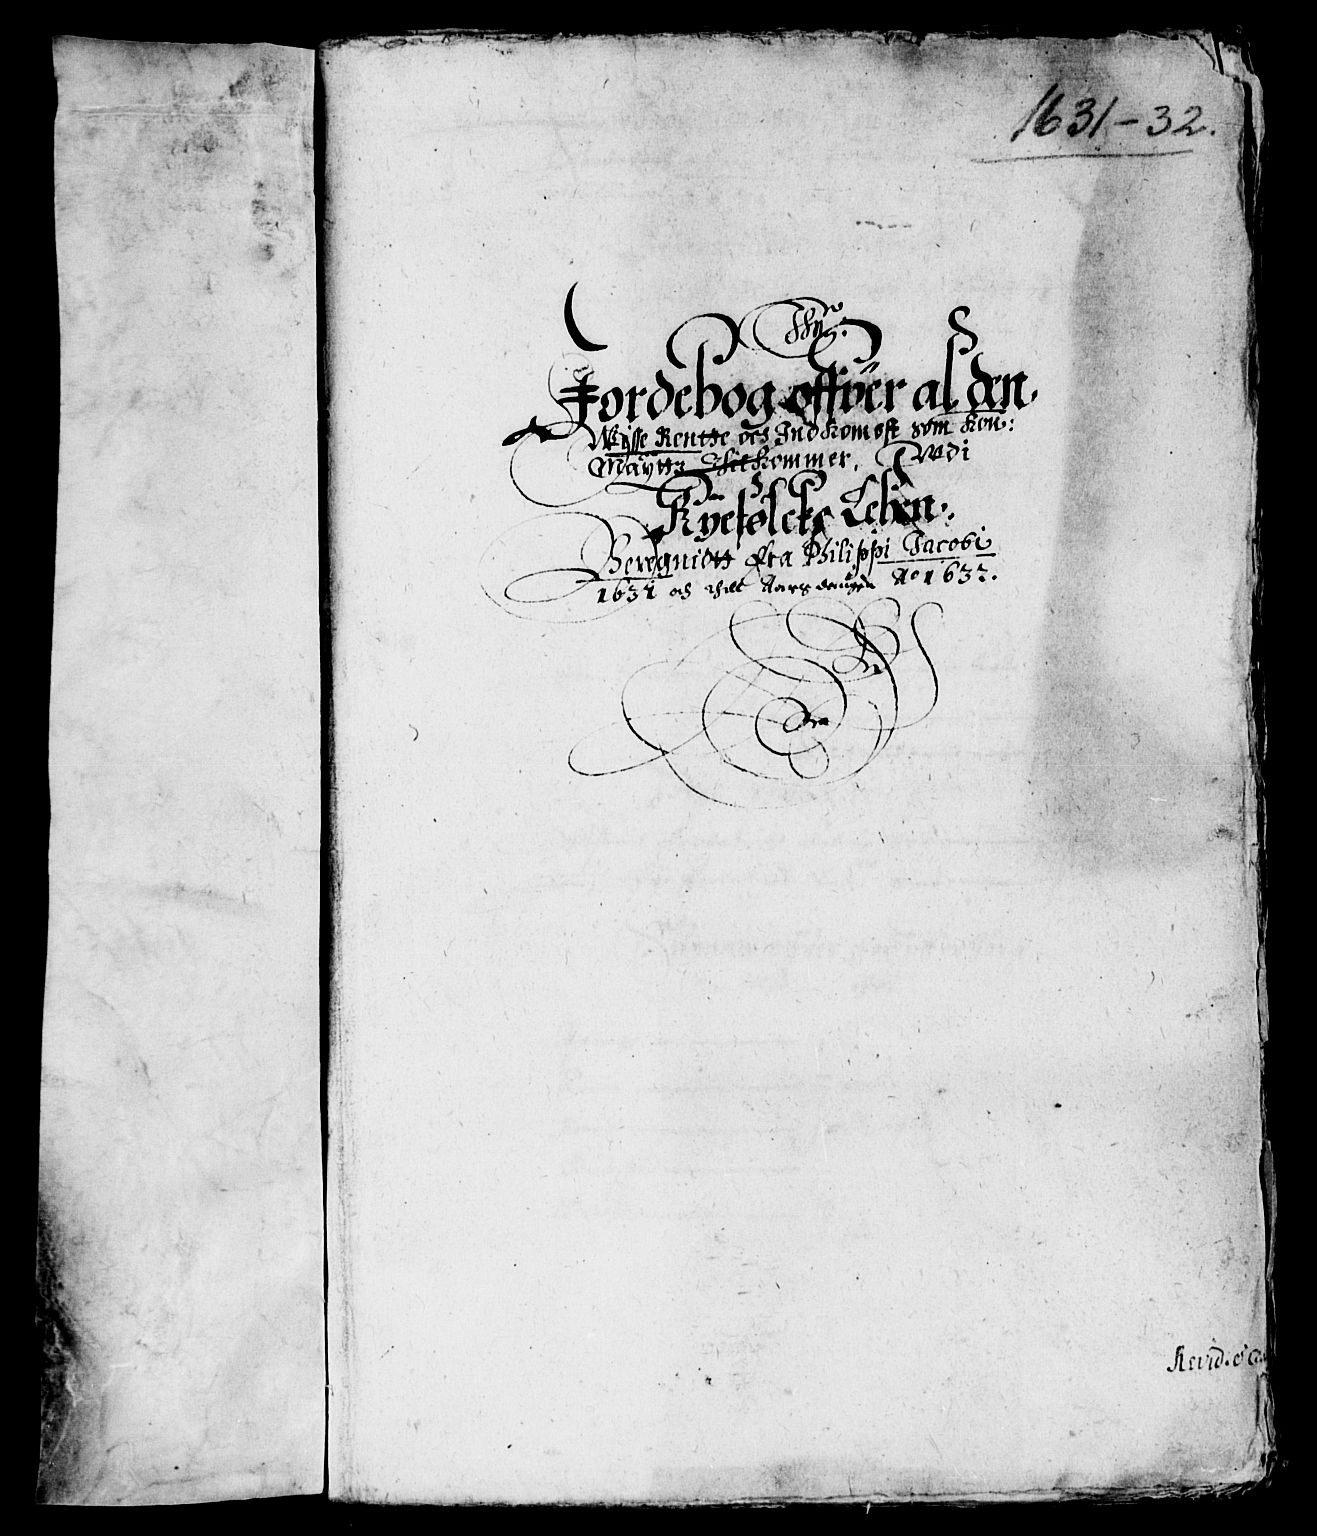 1631-32.
Jordebog offuer al den
Wysse Rentte och Indkomst som Kon:
Maytts Tilkommer, Udi
Ryefølcke Lehen.
Beregnidtt fra Philippi Jacobi
1631 och thill Aarsdaugen Ao 1632.
Revid.